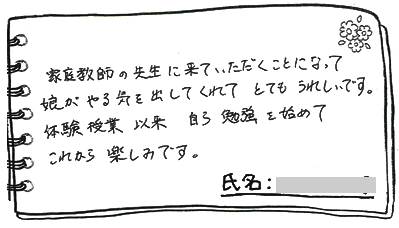 家庭教師の先生に来ていただくことになって
娘がやる気を出してくれて とても うれしいです。
体験授業 以来 自ら 勉強を始めて
これから 楽しみです。
氏名: